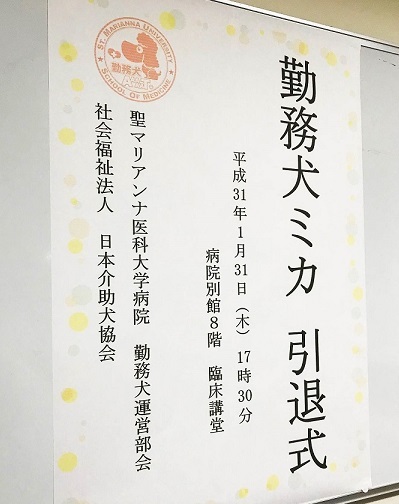 勤務犬ミカ 引退式
平成31年1月31日（木） 17時30分
病院別館８階 臨床講堂
聖マリアンナ医科大学病院 勤務犬運営部会
社会福祉法人 日本介助犬協会
ST. MARIANNA UNIVERSITY
勤務犬
SCHOOL OF MEDICINE